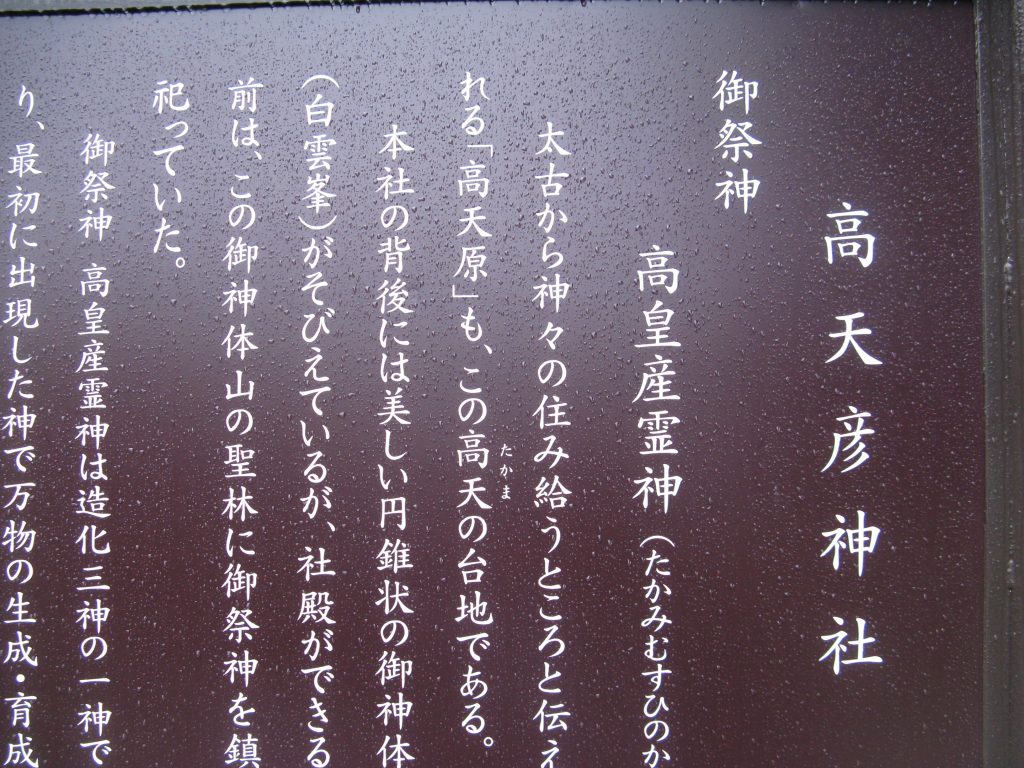 高天彦神社
御祭神
高皇産霊神（たかみむすひのか
太古から神々の住み給うところと伝え
れる「高天原」も、この高天の台地である。
たかま
本社の背後には美しい円錐状の御神体
（白雲峯）がそびえているが、社殿ができる
前は、この御神体山の聖林に御祭神を鎮
祀っていた。
御祭神 高皇産霊神は造化三神の一神で
り、最初に出現した神で万物の生成・育成